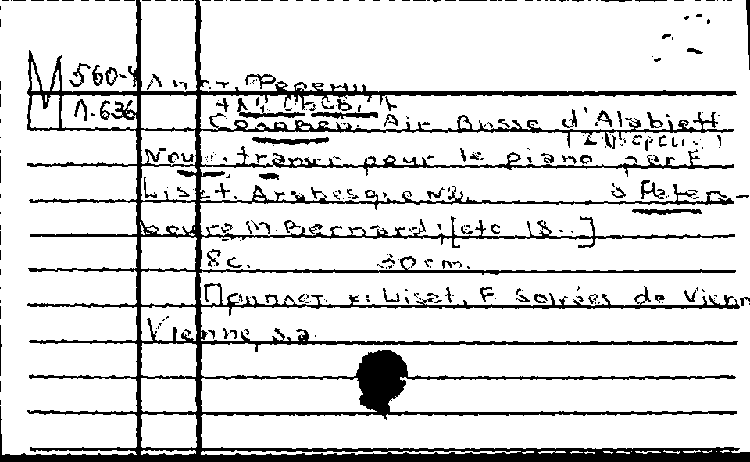 М 560-4 Лист, Ференц
Л-636
Соловей. Air Russe d'Alabieff
Nouv. transcr. pour le piano par F.
Liszt. Arabesque №1. à Peters-
bourg, M. Bernard; [etc 18...]
8с. 30cm.
Приплет к: Liszt, F Soirées de Vienn
Vienne, s.a.